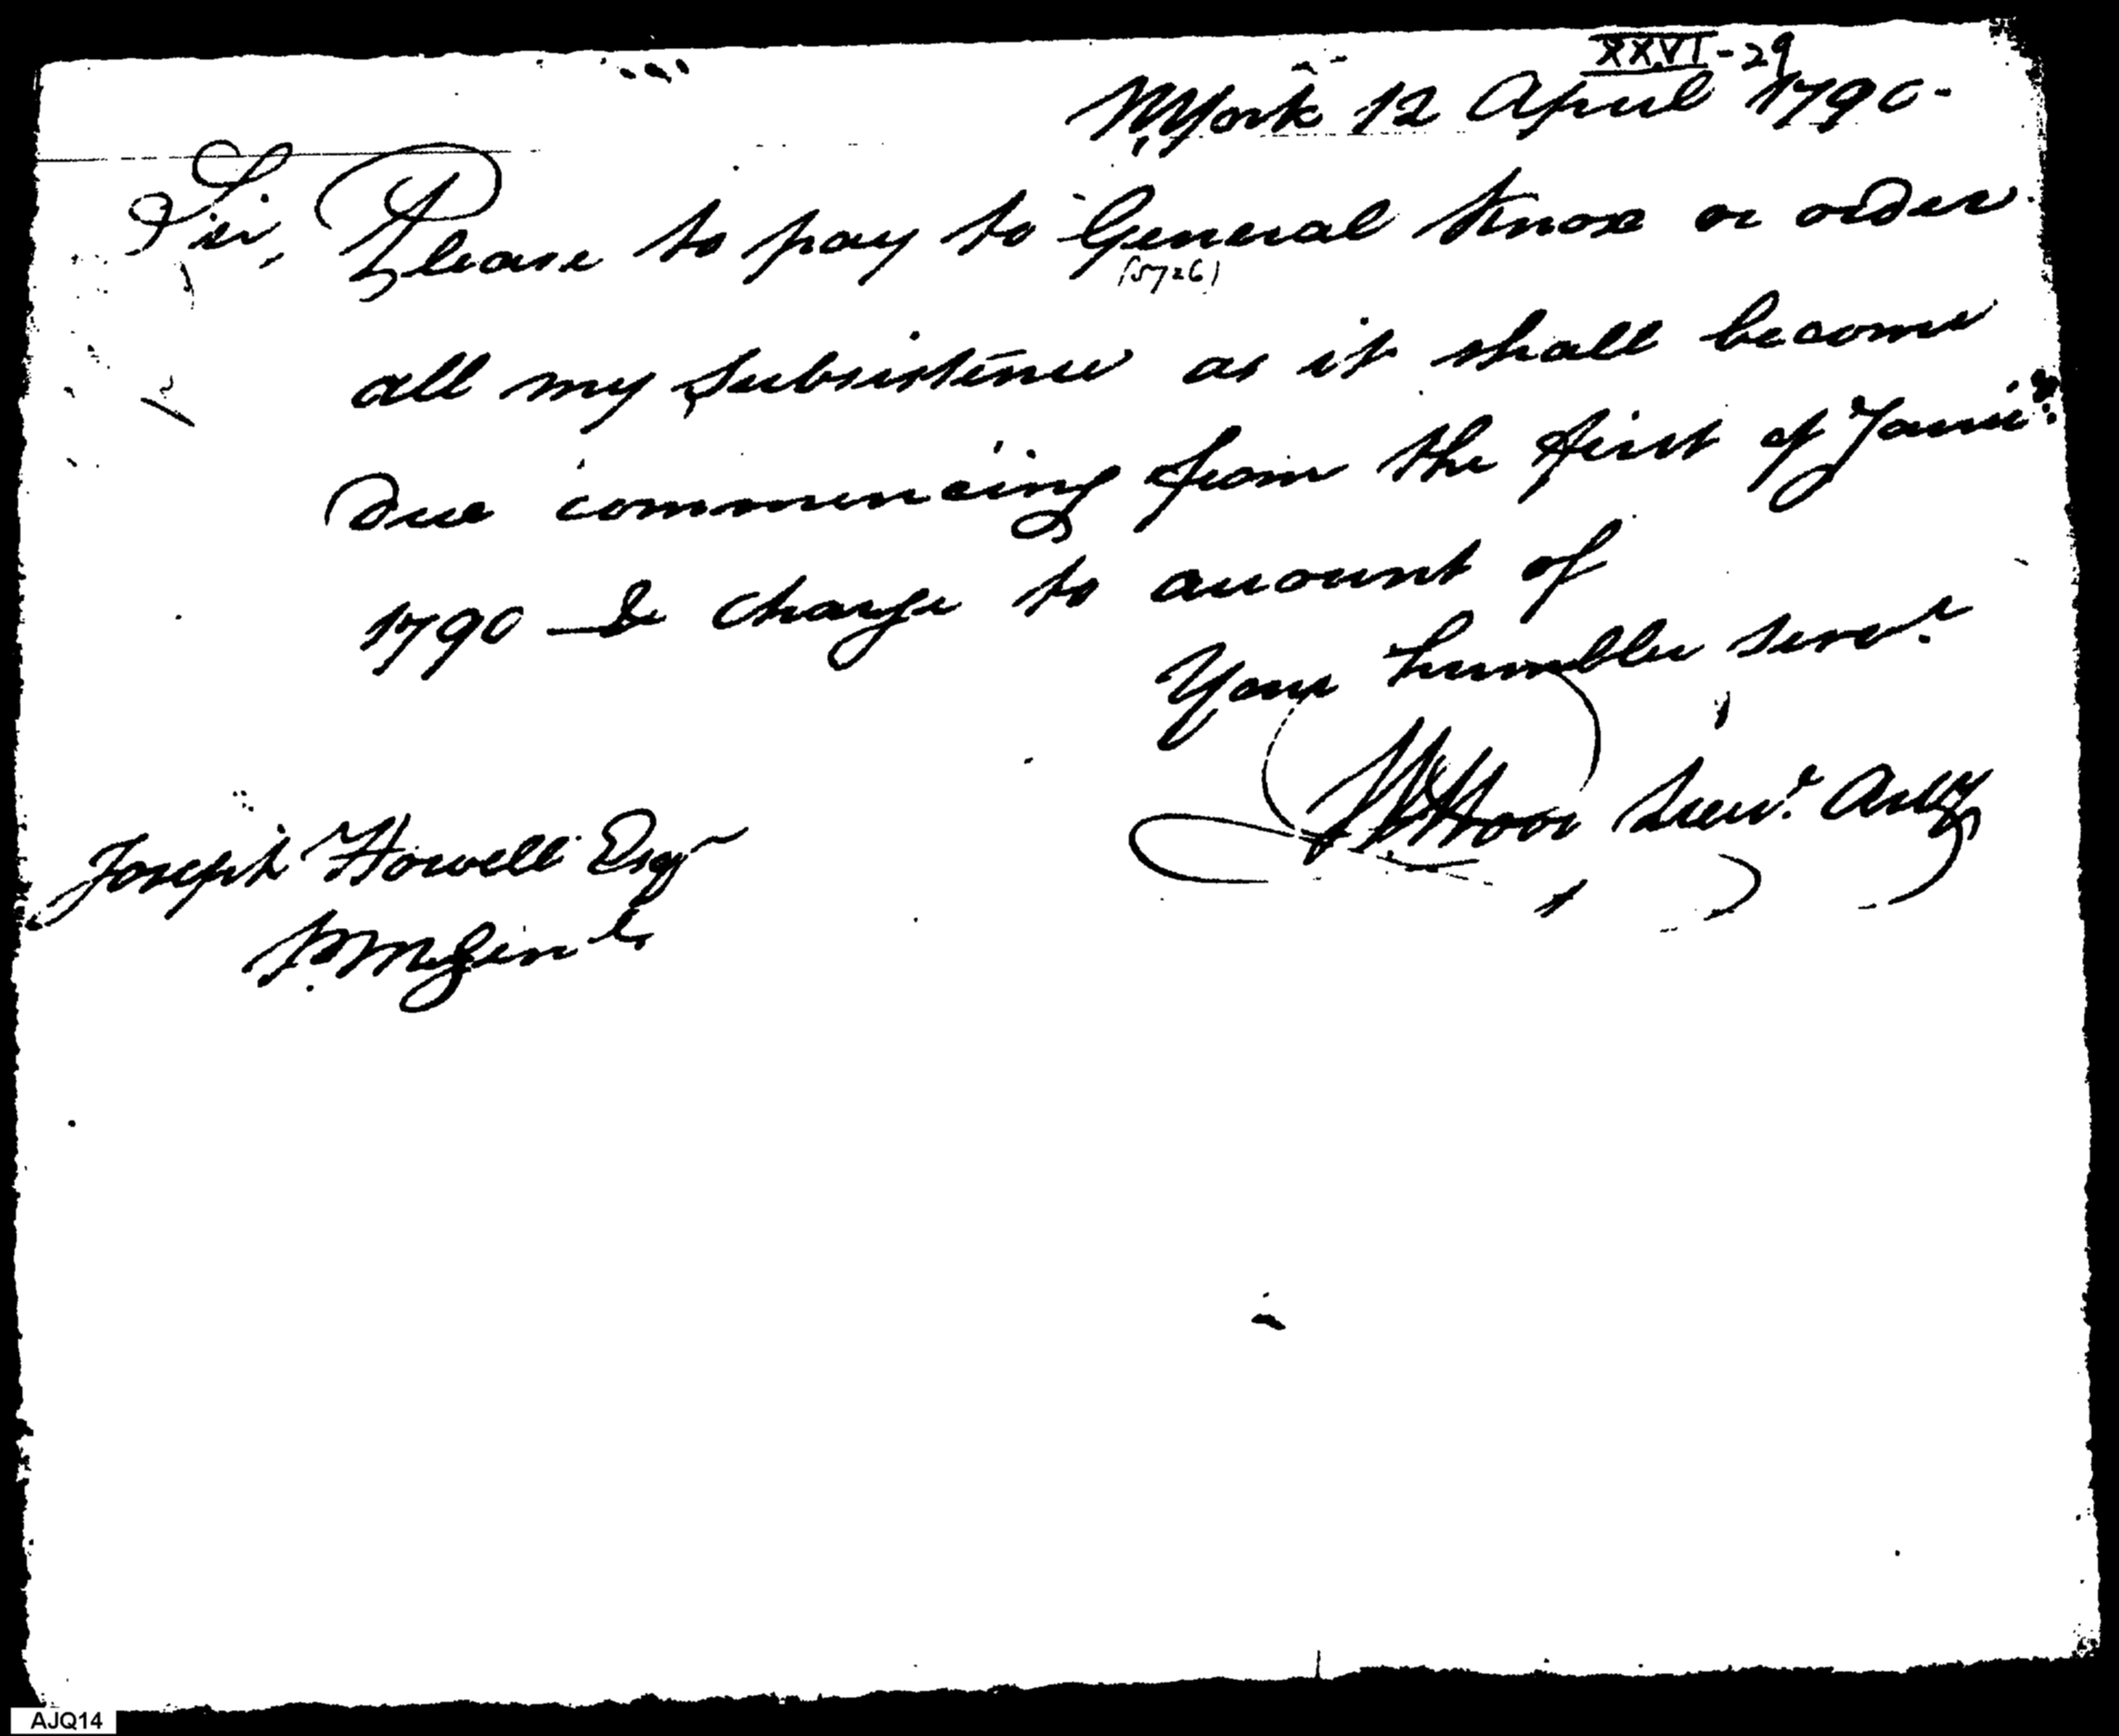 XXVI - 29
N.York 12 April 1790 -
Sir, Please to pay to General Knox or order
(5726)
all my subsistence as it shall become
Due commencing from the first of Janu.
1790 - & charge to account of
Your humble serv.t
Lieut. Arty
Joseph Howell Esqr
P.M. Genl.
AJQ14